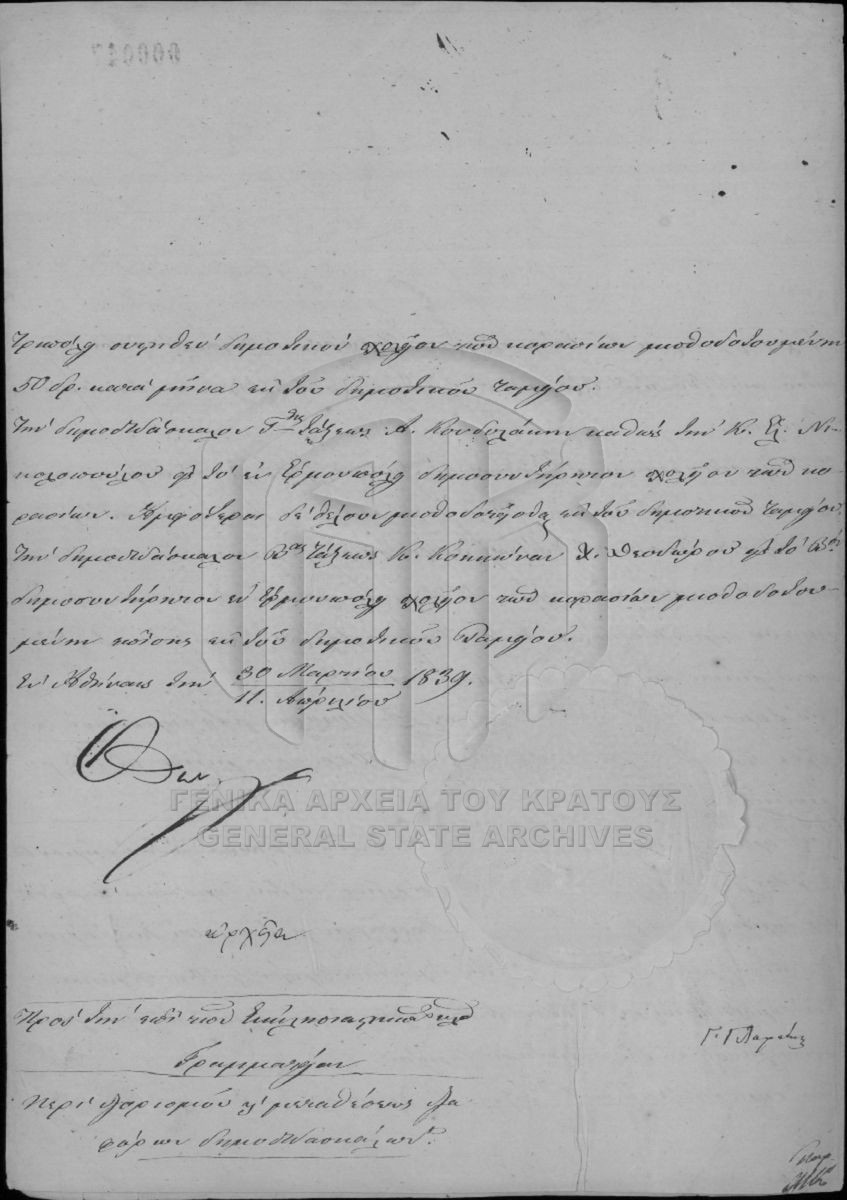 Τριπόλει συστηθέν δημοτικόν σχολεῖον τῶν κορασίων μισθοδοτουμένην
50 δρ. κατὰ μῆνα ἐκ τοῦ δημοτικοῦ ταμείου.
Τὴν δημοδιδάσκαλον Γ΄ης τάξεως Α. Κονδυλάκην καθὼς τὴν Κ. Ἑλ. Νι-
κολοπούλου εἰς τὸ ἐν Ἑρμουπόλει δημοσυντήρητον σχολεῖον τῶν κο-
ρασίων. Ἀμφότεραι δὲ θέλουν μισθοδοτεῖσθαι ἐκ τοῦ δημοτικοῦ ταμείου.
Τὴν δημοδιδάσκαλον Β΄ας τάξεως Κ. Κοκκώναν Χ. Θεοδώρου εἰς τὸ
δημοσυντήρητον ἐν Ἑρμουπόλει σχολεῖον τῶν κορασίων μισθοδοτου-
μένην ἐπίσης ἐκ τοῦ δημοτικοῦ Ταμείου.
Ἐν Ἀθήναις τὴν 30 Μαρτίου 1839.
11. Ἀπριλίου
Ὄθων
ΓΕΝΙΚΑ ΑΡΧΕΙΑ ΤΟΥ ΚΡΑΤΟΥΣ
GENERAL STATE ARCHIVES
ἀρχεῖα
Πρὸς τὴν ἐπὶ τῶν Ἐκκλησιαστικῶν
Γραμματείαν
Γ. Γλαράκης
Περὶ διορισμοῦ κ' μεταθέσεως δια
φόρων δημοδιδασκάλων.